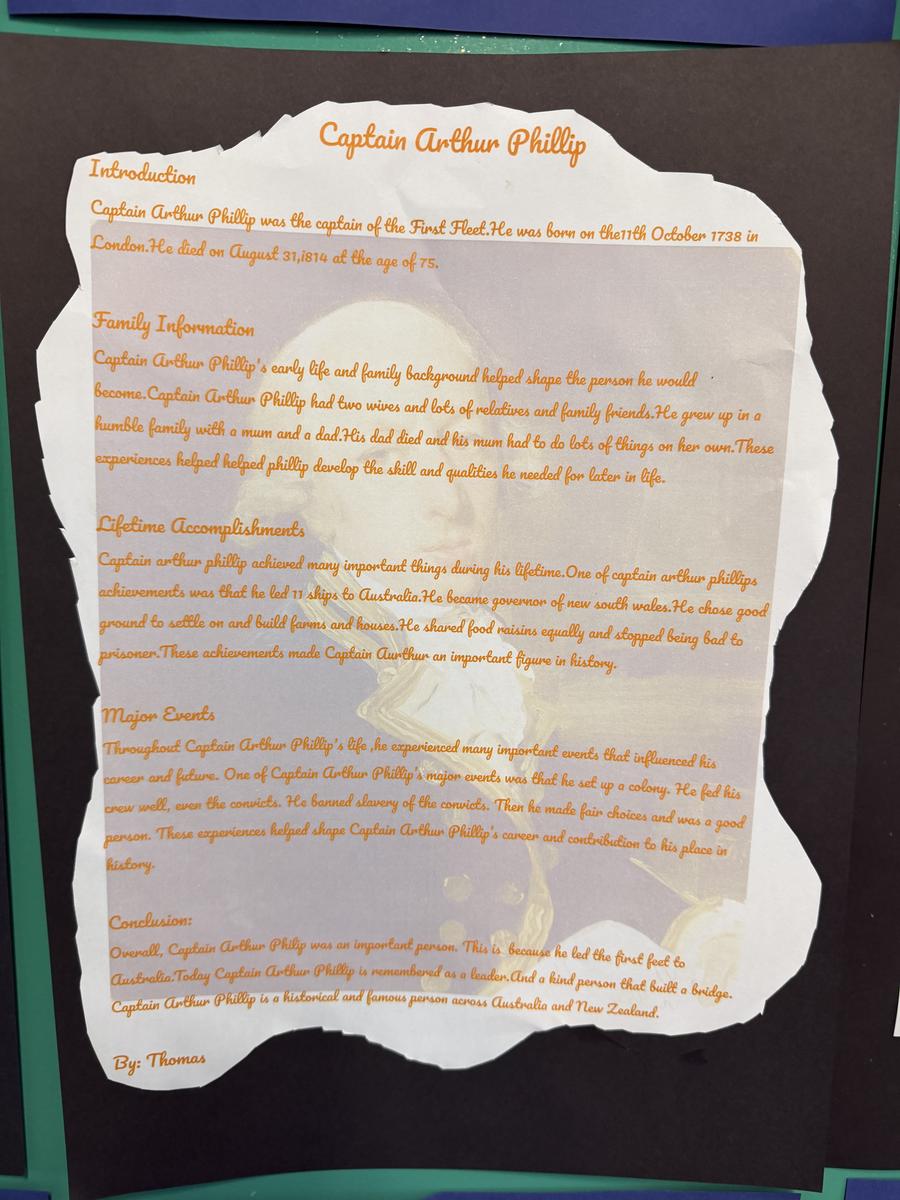 Captain Arthur Phillip
Introduction
Captain Arthur Phillip was the captain of the First Fleet.He was born on the11th October 1738 in
London.He died on August 31,i814 at the age of 75.
Family Information
Captain Arthur Phillip's early life and family background helped shape the person he would
become.Captain Arthur Phillip had two wives and lots of relatives and family friends.He grew up in a
humble family with a mum and a dad.His dad died and his mum had to do lots of things on her own.These
experiences helped helped phillip develop the skill and qualities he needed for later in life.
Lifetime Accomplishments
Captain arthur phillip achieved many important things during his lifetime.One of captain arthur phillips
achievements was that he led 11 ships to Australia.He became governor of new south wales.He chose good
ground to settle on and build farms and houses.He shared food raisins equally and stopped being bad to
prisoner.These achievements made Captain Aurthur an important figure in history.
Major Events
Throughout Captain Arthur Phillip's life ,he experienced many important events that influenced his
career and future. One of Captain Arthur Phillip's major events was that he set up a colony. He fed his
crew well, even the convicts. He banned slavery of the convicts. Then he made fair choices and was a good
person. These experiences helped shape Captain Arthur Phillip's career and contribution to his place in
history.
Conclusion:
Overall, Captain Arthur Philip was an important person. This is  because he led the first feet to
Australia.Today Captain Arthur Phillip is remembered as a leader.And a kind person that built a bridge.
Captain Arthur Phillip is a historical and famous person across Australia and New Zealand.
By: Thomas